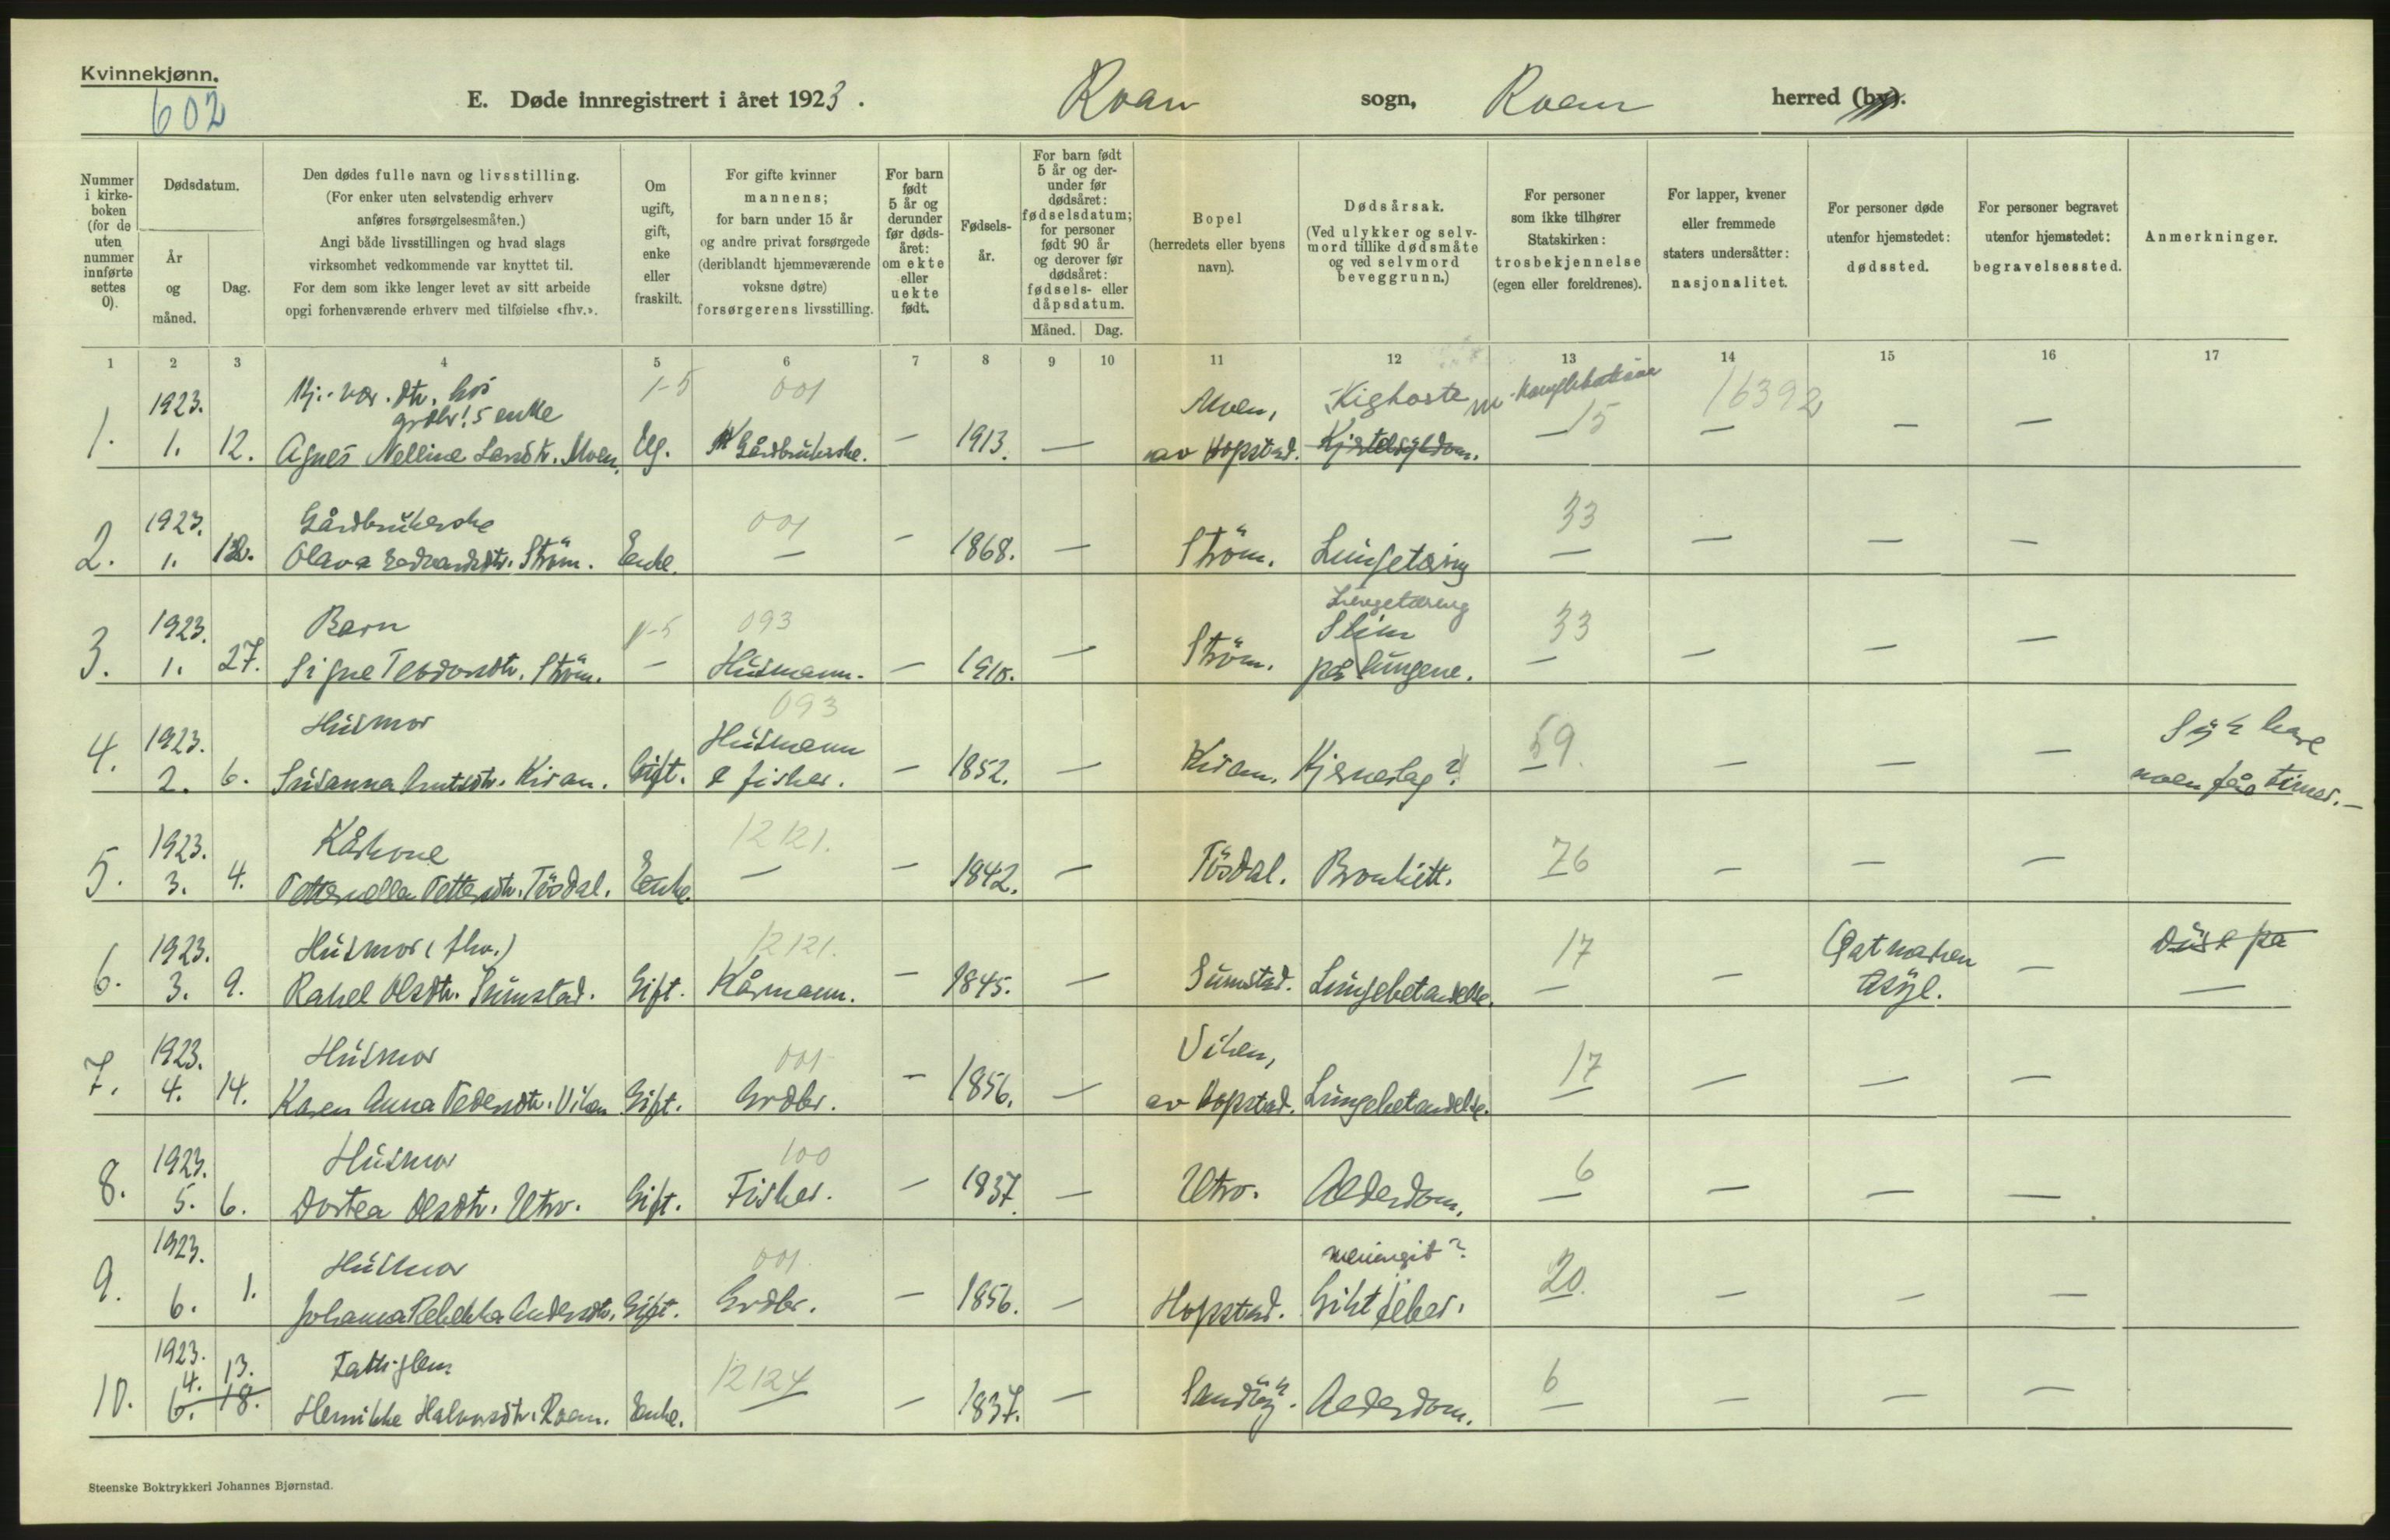 Kvinnekjønn.
602
E. Døde innregistrert i året 1923.
Roan sogn, Roan herred (by).
Nummer i kirkeboken (for de uten nummer innførte settes 0).
Dødsdatum.
År og måned.
Dag.
Den dødes fulle navn og livsstilling.
(For enker uten selvstendig erhverv
anføres forsørgelsesmåten.)
Angi både livsstillingen og hvad slags
virksomhet vedkommende var knyttet til.
For dem som ikke lenger levet av sitt arbeide
opgi forhenværende erhverv med tilføielse «fhv.».
Om ugift, gift, enke eller fraskilt.
For gifte kvinner
mannens;
for barn under 15 år
og andre privat forsørgede
(deriblandt hjemmeværende
voksne døtre)
forsørgerens livsstilling.
For barn født 5 år og derunder før dødsåret: om ekte eller uekte født.
Fødselsår.
For barn født 5 år og derunder før dødsåret: fødselsdatum; for personer født 90 år og derover før dødsåret: fødsels- eller dåpsdatum.
Måned. Dag.
Bopel
(herredets eller byens
navn).
Dødsårsak.
(Ved ulykker og selvmord tillike dødsmåte og ved selvmord beveggrunn.)
For personer
som ikke tilhører
Statskirken:
trosbekjennelse
(egen eller foreldrenes).
For lapper, kvener
eller fremmede
staters undersåtter:
nasjonalitet.
For personer døde
utenfor hjemstedet:
dødssted.
For personer begravet
utenfor hjemstedet:
begravelsessted.
Anmerkninger.
1 2 3 4 5 6 7 8 9 10 11 12 13 14 15 16 17
1923. Hj.-vær. dtr. hos 1-5 001 Moen, Kighoste m. komplikationer 16392
grdbr's enke
1. 1. 12. Agnes Nelline Larsdtr. Moen. Ug. Gårdbrukerske. — 1913. — av Hopstad. Kjertelsykdom. — 15 — — —
1923. Gårdbrukerske 001 33
2. 1. 12. Olava Edvardsdtr. Strøm. Enke. — — 1868. — Strøm. Lungetæring — — — —
Lungetæring
1923. Barn 1-5 093 Slim 33
3. 1. 27. Signe Teodorsdtr. Strøm. — Husmann. — 1910. — Strøm. på lungene. — — — —
1923. Husmor 093 Husmann 59. Syk bare
4. 2. 6. Susanna Knutsdtr. Kiran. Gift. & fisker. — 1852. — Kiran. Hjerneslag? — — — — noen få timer. —
1923. Kårkone 12121. 76
5. 3. 4. Petternella Pettersdtr. Tøsdal. Enke. — — 1842. — Tøsdal. Bronkitt. — — — —
1923. Husmor (fhv.) 12121. 17 Døse på
6. 3. 9. Rakel Olsdtr. Sumstad. Gift. Kårmann. — 1845. — Sumstad. Lungebetændelse. — — Asyl. — —
1923. Husmor 001 Viken, 17
7. 4. 14. Karen Anna Pedersdtr. Viken Gift. Grdbr. — 1856. — av Hopstad. Lungebetændelse. — — — —
1923. Husmor 100 6
8. 5. 6. Dortea Olsdtr. Utro. Gift. Fisker. — 1837 — Utro. Alderdom. — — — —
1923. Husmor 001 meningit? 20.
9. 6. 1. Johanna Rebekka Andersdtr. Gift. Grdbr. — 1856. — Hopstad. Giktfeber. — — — —
1923. Fattiglem. 12124 6
4. 13.
10. 6. 18. Henrikke Halvorsdtr. Roan. Enke. — — 1837. — Sandøy. Alderdom. — — — —
Steenske Boktrykkeri Johannes Bjørnstad.